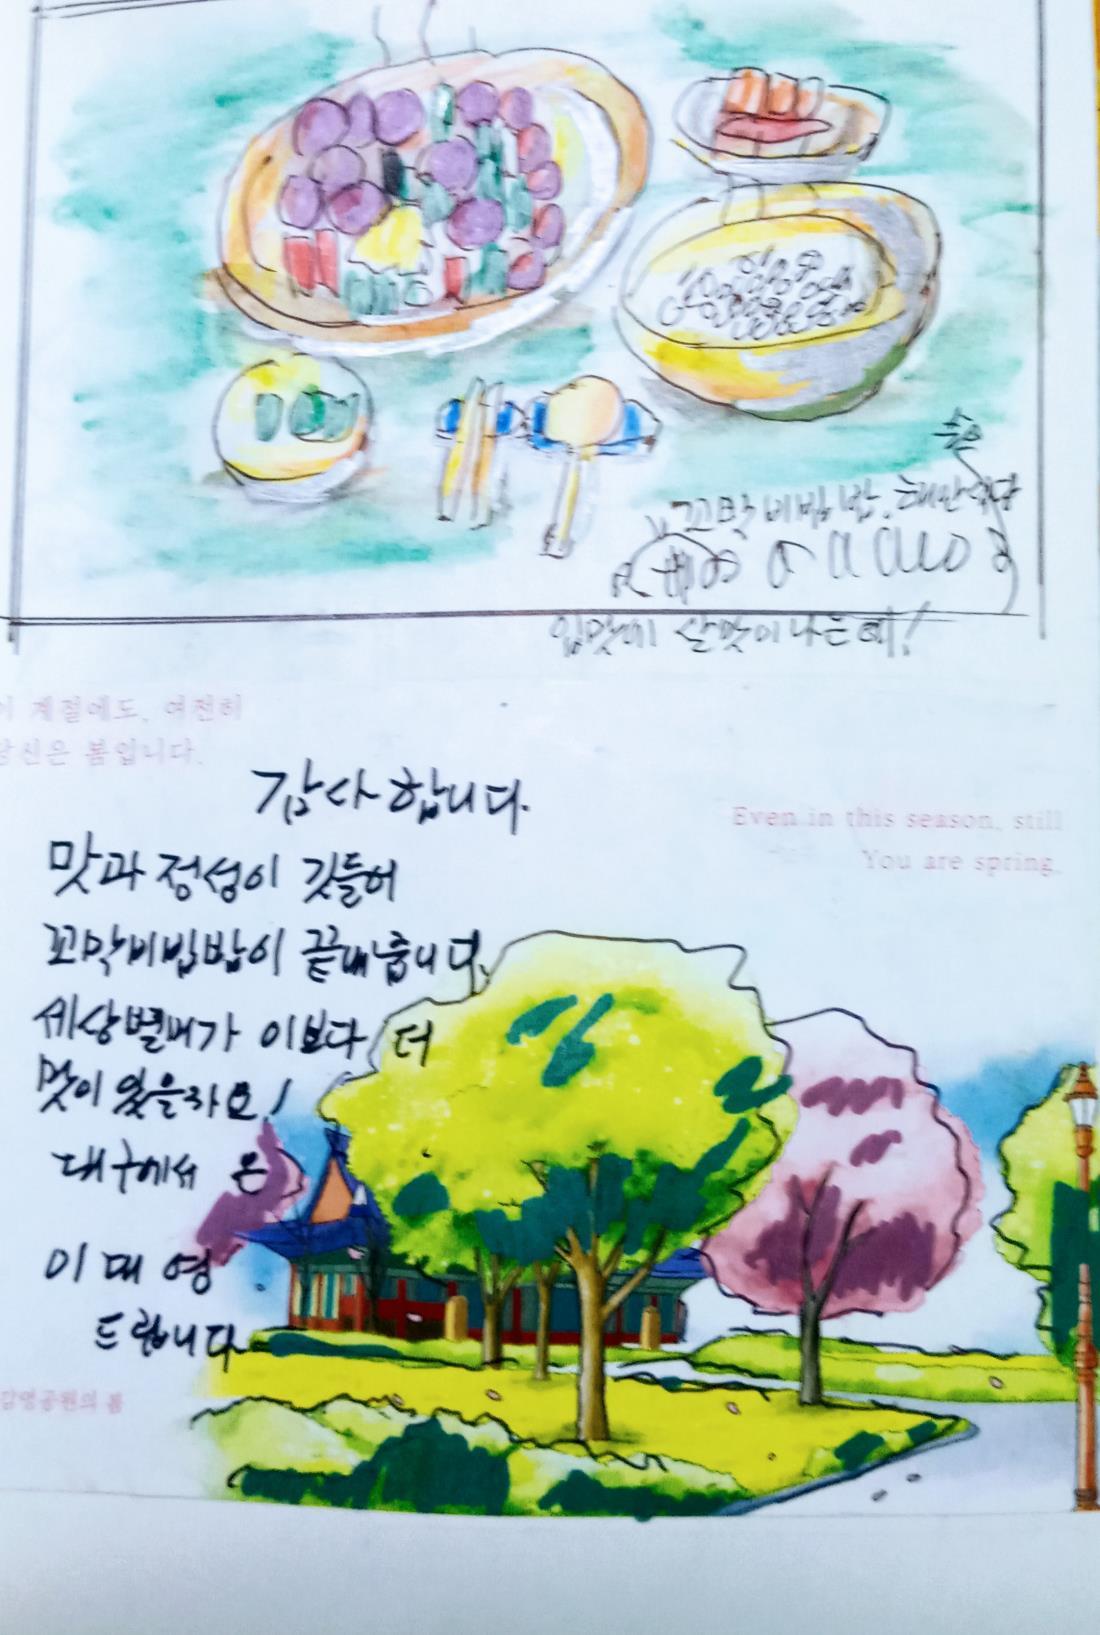 꼬막비빔밥. 해안식당
입맛에 살맛이 나는데!
이 계절에도, 여전히
당신은 봄입니다.
감사합니다.
Even in this season, still
You are spring.
맛과 정성이 깃들어
꼬막비빔밥이 끝내줍니다.
세상별미가 이보다 더
맛이 있을까요!
대구에서 온
이대영
드립니다
감영공원의 봄